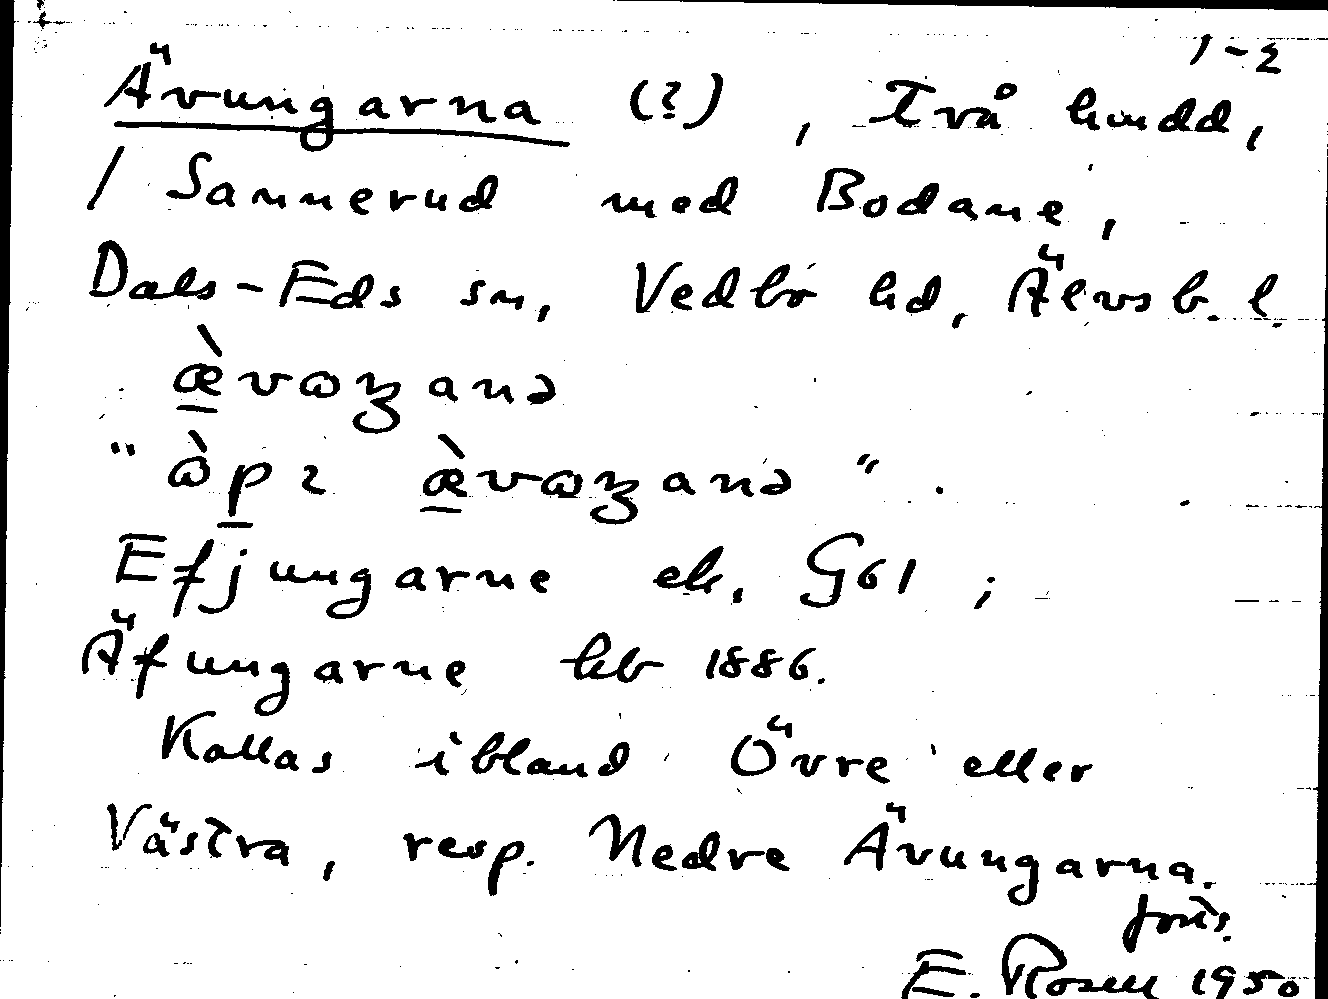 1-2
Ävungarna (?), Två hmdd,
/ Sannerud med Bodane,
Dals-Eds sn, Vedbo hd, Älvsb. l.
Efjungarne ek. G61;
Äfungarne hb 1886.
Kallas ibland Övre eller
Västra, resp. Nedre Ävungarna.
forts.
E. Rosell 1950